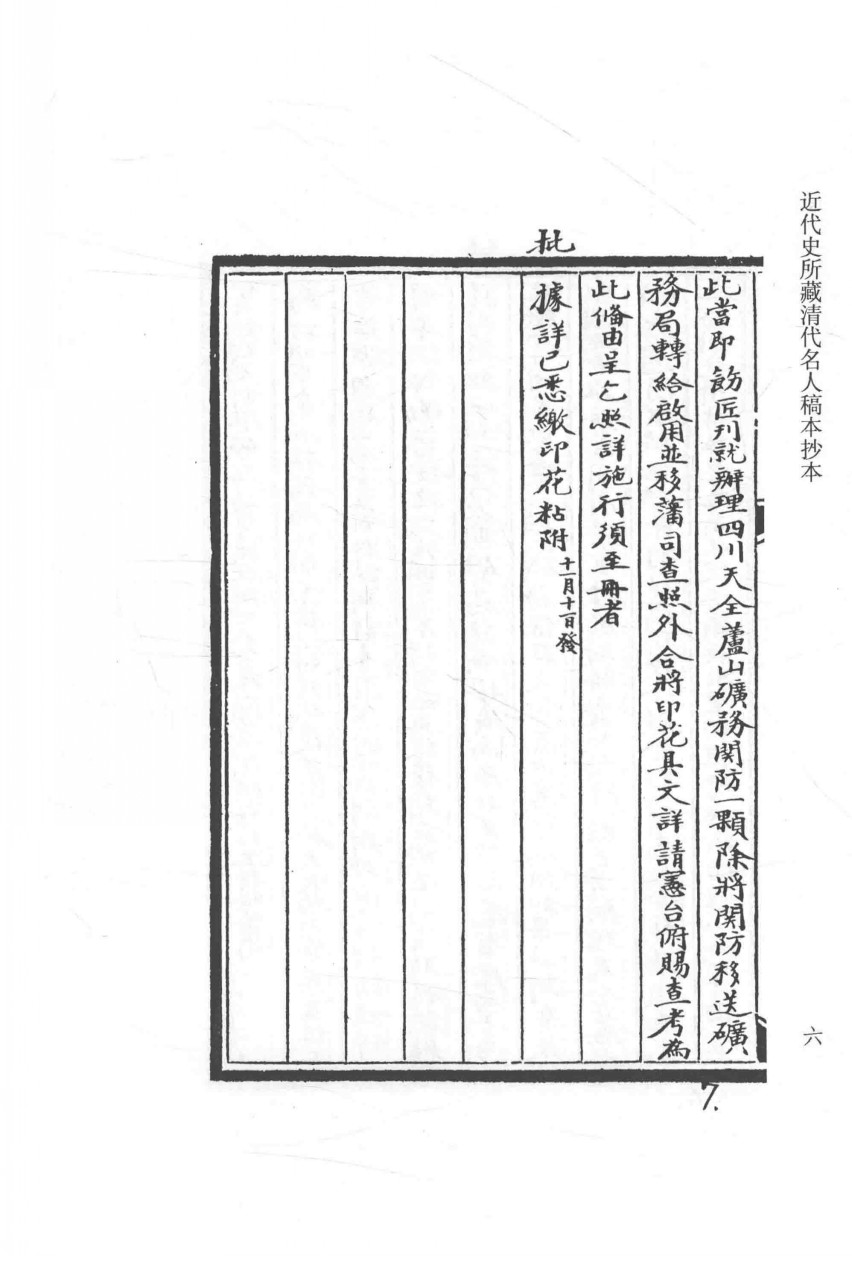 近代史所藏清代名人稿本抄本
六
此當即飭匠刋就辦理四川天全蘆山礦務関防一顆除將関防移送礦
務局轉給啟用並移藩司查照外合將印花具文詳請憲台俯賜查考為
此俻由呈乞照詳施行須至冊者
批
據詳已悉繳印花粘附十一月十一日發
7.